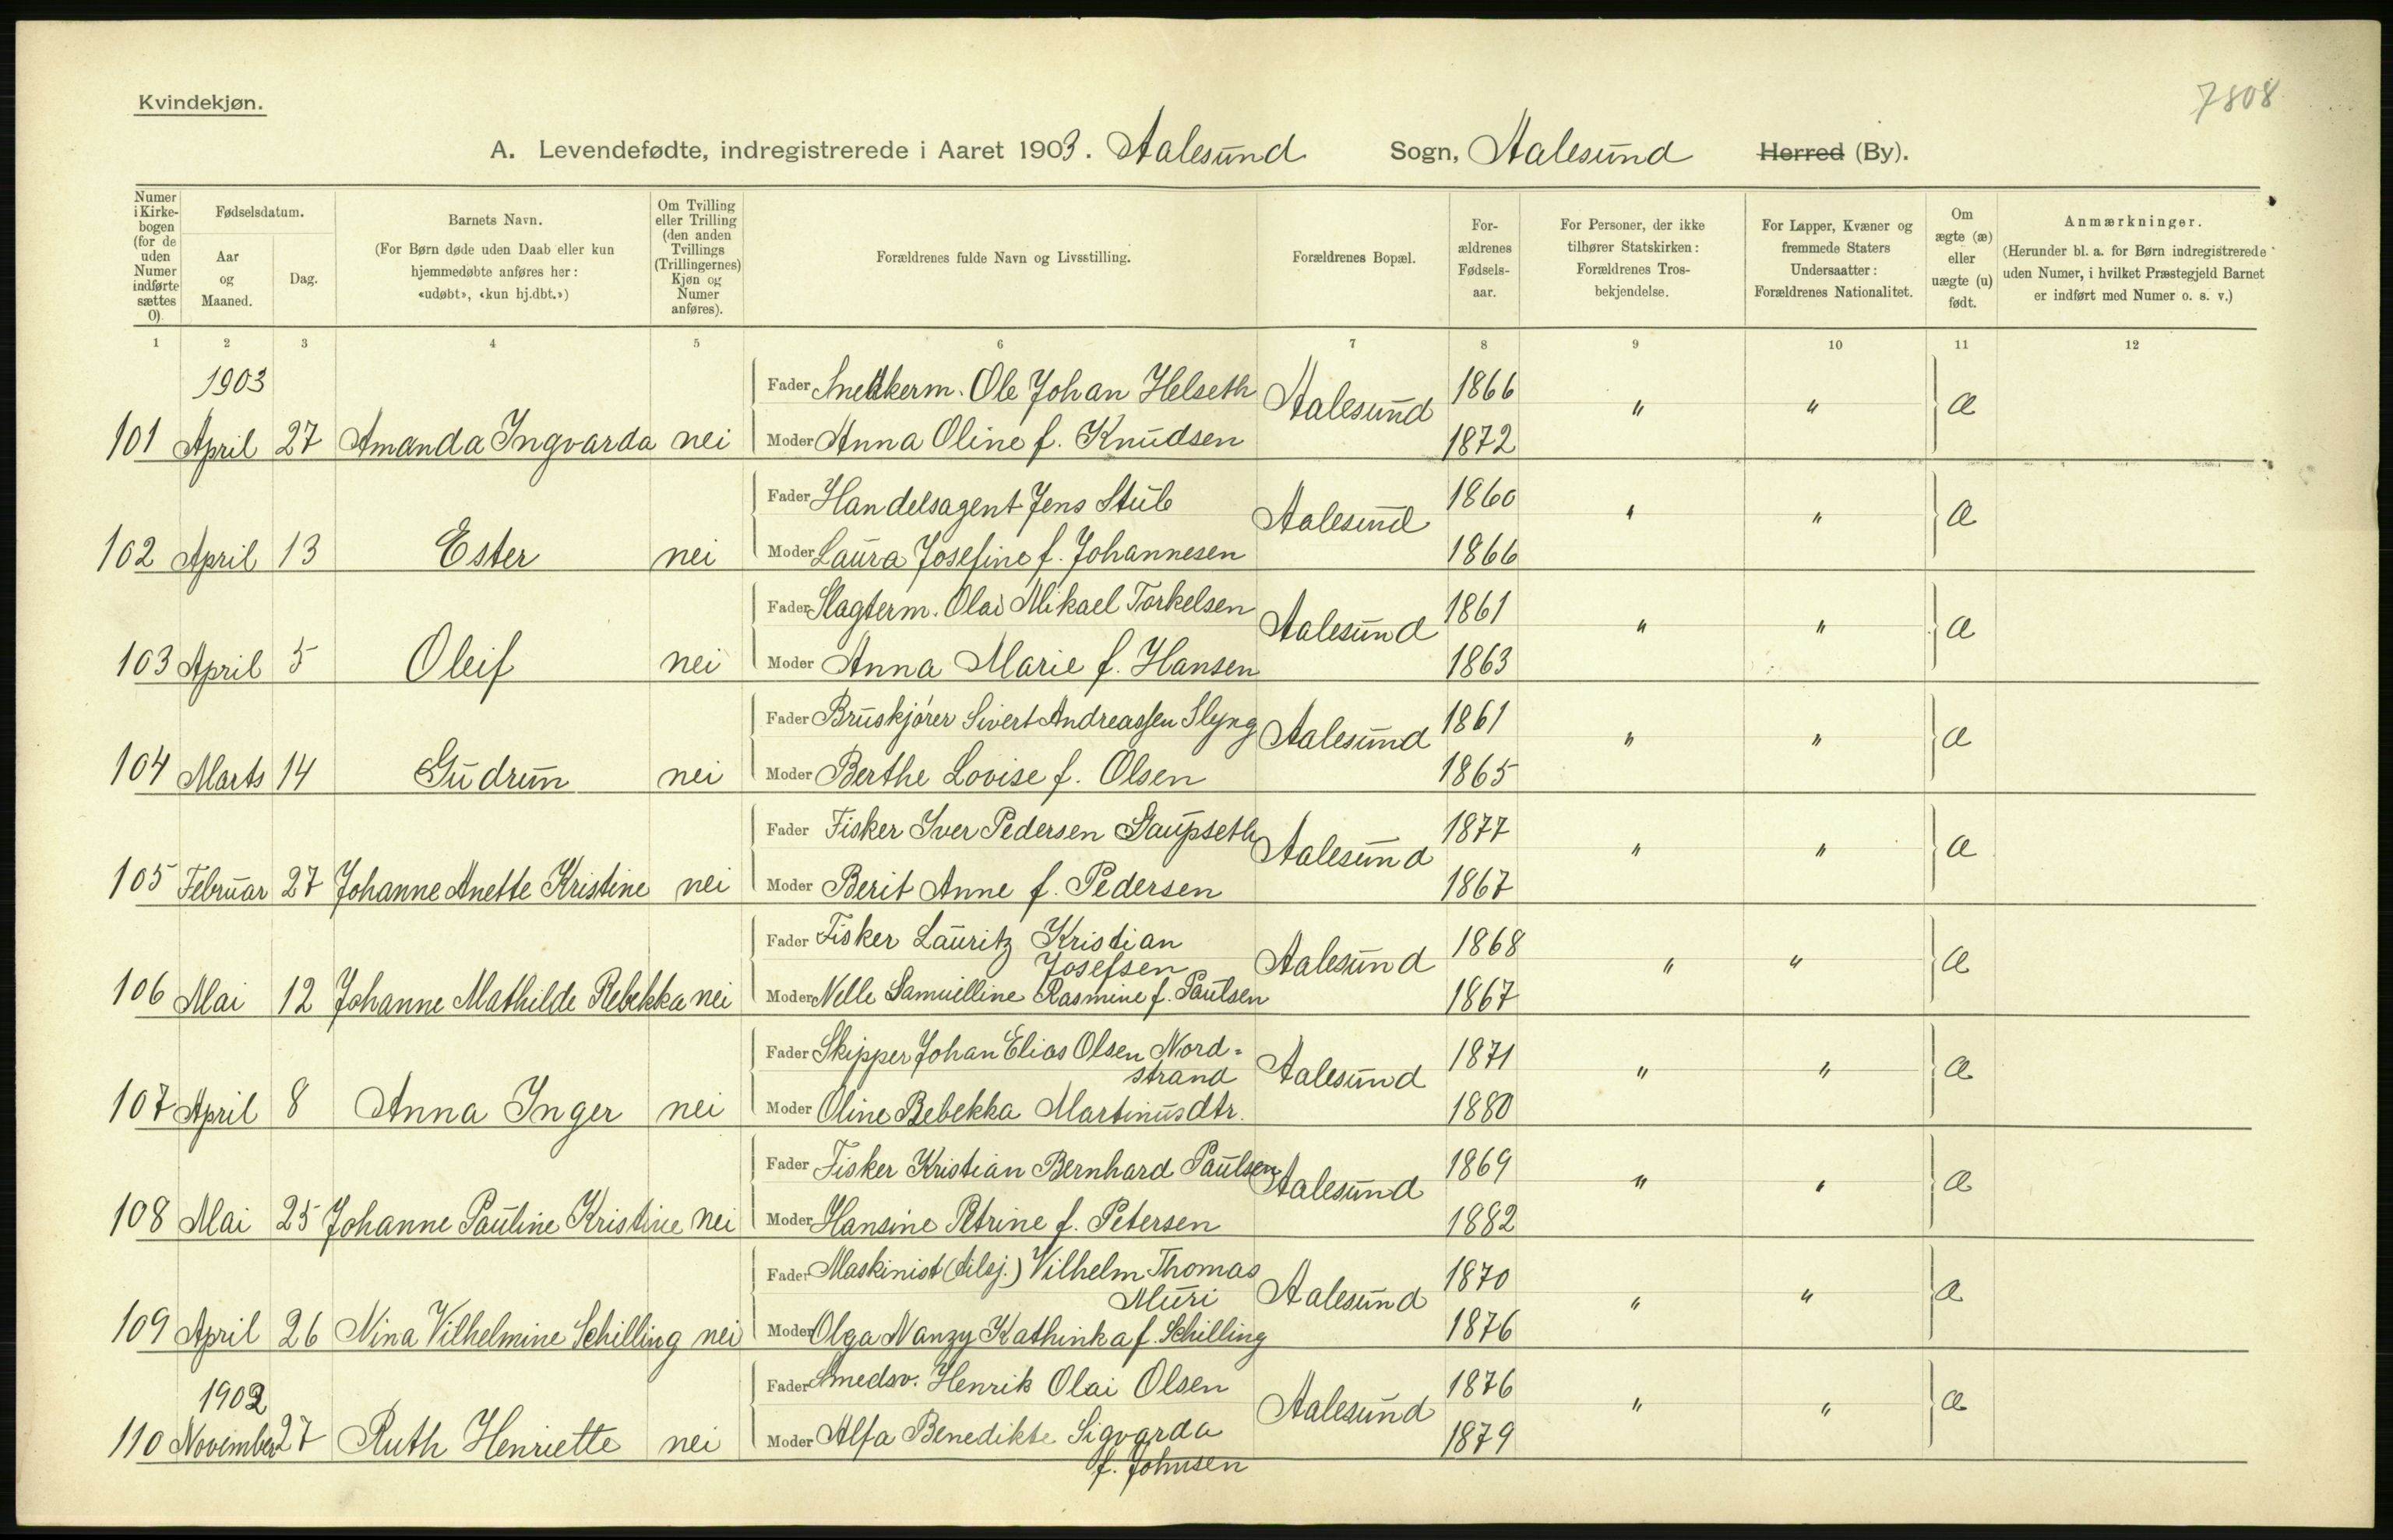 Kvindekjøn.
7808
A. Levendefødte, indregistrerede i Aaret 1903. Aalesund Sogn, Aalesund Herred (By).
Numer i Kirke-bogen (for de uden Numer indførte sættes 0).
Fødselsdatum.
Aar og Maaned.
Dag.
Barnets Navn.
(For Børn døde uden Daab eller kun hjemmedøbte anføres her: «udøbt», «kun hj.dbt.»)
Om Tvilling eller Trilling (den anden Tvillings (Trillingernes) Kjøn og Numer anføres).
Forældrenes fulde Navn og Livsstilling.
Forældrenes Bopæl.
For-ældrenes Fødsels-aar.
For Personer, der ikke tilhører Statskirken: Forældrenes Tros-bekjendelse.
For Lapper, Kvæner og fremmede Staters Undersaatter: Forældrenes Nationalitet.
Om ægte (æ) eller uægte (u) født.
Anmærkninger.
(Herunder bl. a. for Børn indregistrerede uden Numer, i hvilket Præstegjeld Barnet er indført med Numer o. s. v.)
1 2 3 4 5 6 7 8 9 10 11 12
1903
Fader Snekkerm. Ole Johan Helseth Aalesund 1866 " " æ
101 April 27 Amanda Ingvarda nei Moder Anna Oline f. Knudsen 1872
Fader Handelsagent Jens Stub Aalesund 1860 " " æ
102 April 13 Ester nei Moder Laura Josefine f. Johannesen 1866
Fader Slagterm. Olai Mikael Torkelsen Aalesund 1861 " " æ
103 April 5 Oleif nei Moder Anna Marie f. Hansen 1863
Fader Bruskjører Sivert Andreassen Slyng Aalesund 1861 " " æ
104 Marts 14 Gudrun nei Moder Berthe Lovise f. Olsen 1865
Fader Fisker Iver Pedersen Gaupseth Aalesund 1877 " " æ
105 Februar 27 Johanne Anette Kristine nei Moder Berit Anne f. Pedersen 1867
Fader Fisker Lauritz Kristian Aalesund 1868 " " æ
Josefsen
106 Mai 12 Johanne Mathilde Rebekka nei Moder Nelle Samuelline Rasmine f. Paulsen 1867
Fader Skipper Johan Elias Olsen Nord= Aalesund 1871 " " æ
strand
107 April 8 Anna Inger nei Moder Oline Rebekka Martinusdtr. 1880
Fader Fisker Kristian Bernhard Paulsen Aalesund 1869 " " æ
108 Mai 25 Johanne Pauline Kristine nei Moder Hansine Petrine f. Petersen 1882
Fader Maskinist (tilsj.) Vilhelm Thomas Aalesund 1870 " " æ
Muri
109 April 26 Nina Vilhelmine Schilling nei Moder Olga Nanzy Kathinka f. Schilling 1876
1902
Fader Smedsv. Henrik Olai Olsen Aalesund 1876 " " æ
110 November 27 Ruth Henriette nei Moder Alfa Benedikte Sigvarda 1879
f. Johnsen